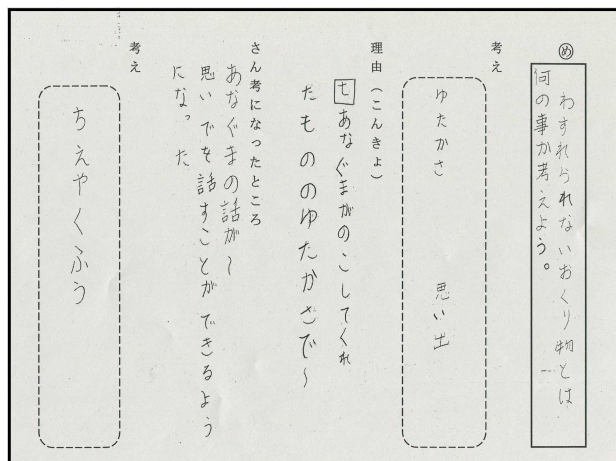 め
わすれられないおくり物とは
何の事か考えよう。
考え
ゆたかさ　思い出
理由（こんきょ）
七あなぐまがのこしてくれ
たもののゆたかさで～
さん考になったところ
あなぐまの話が～
思いでを話すことができるよう
になった
考え
ちえやくふう